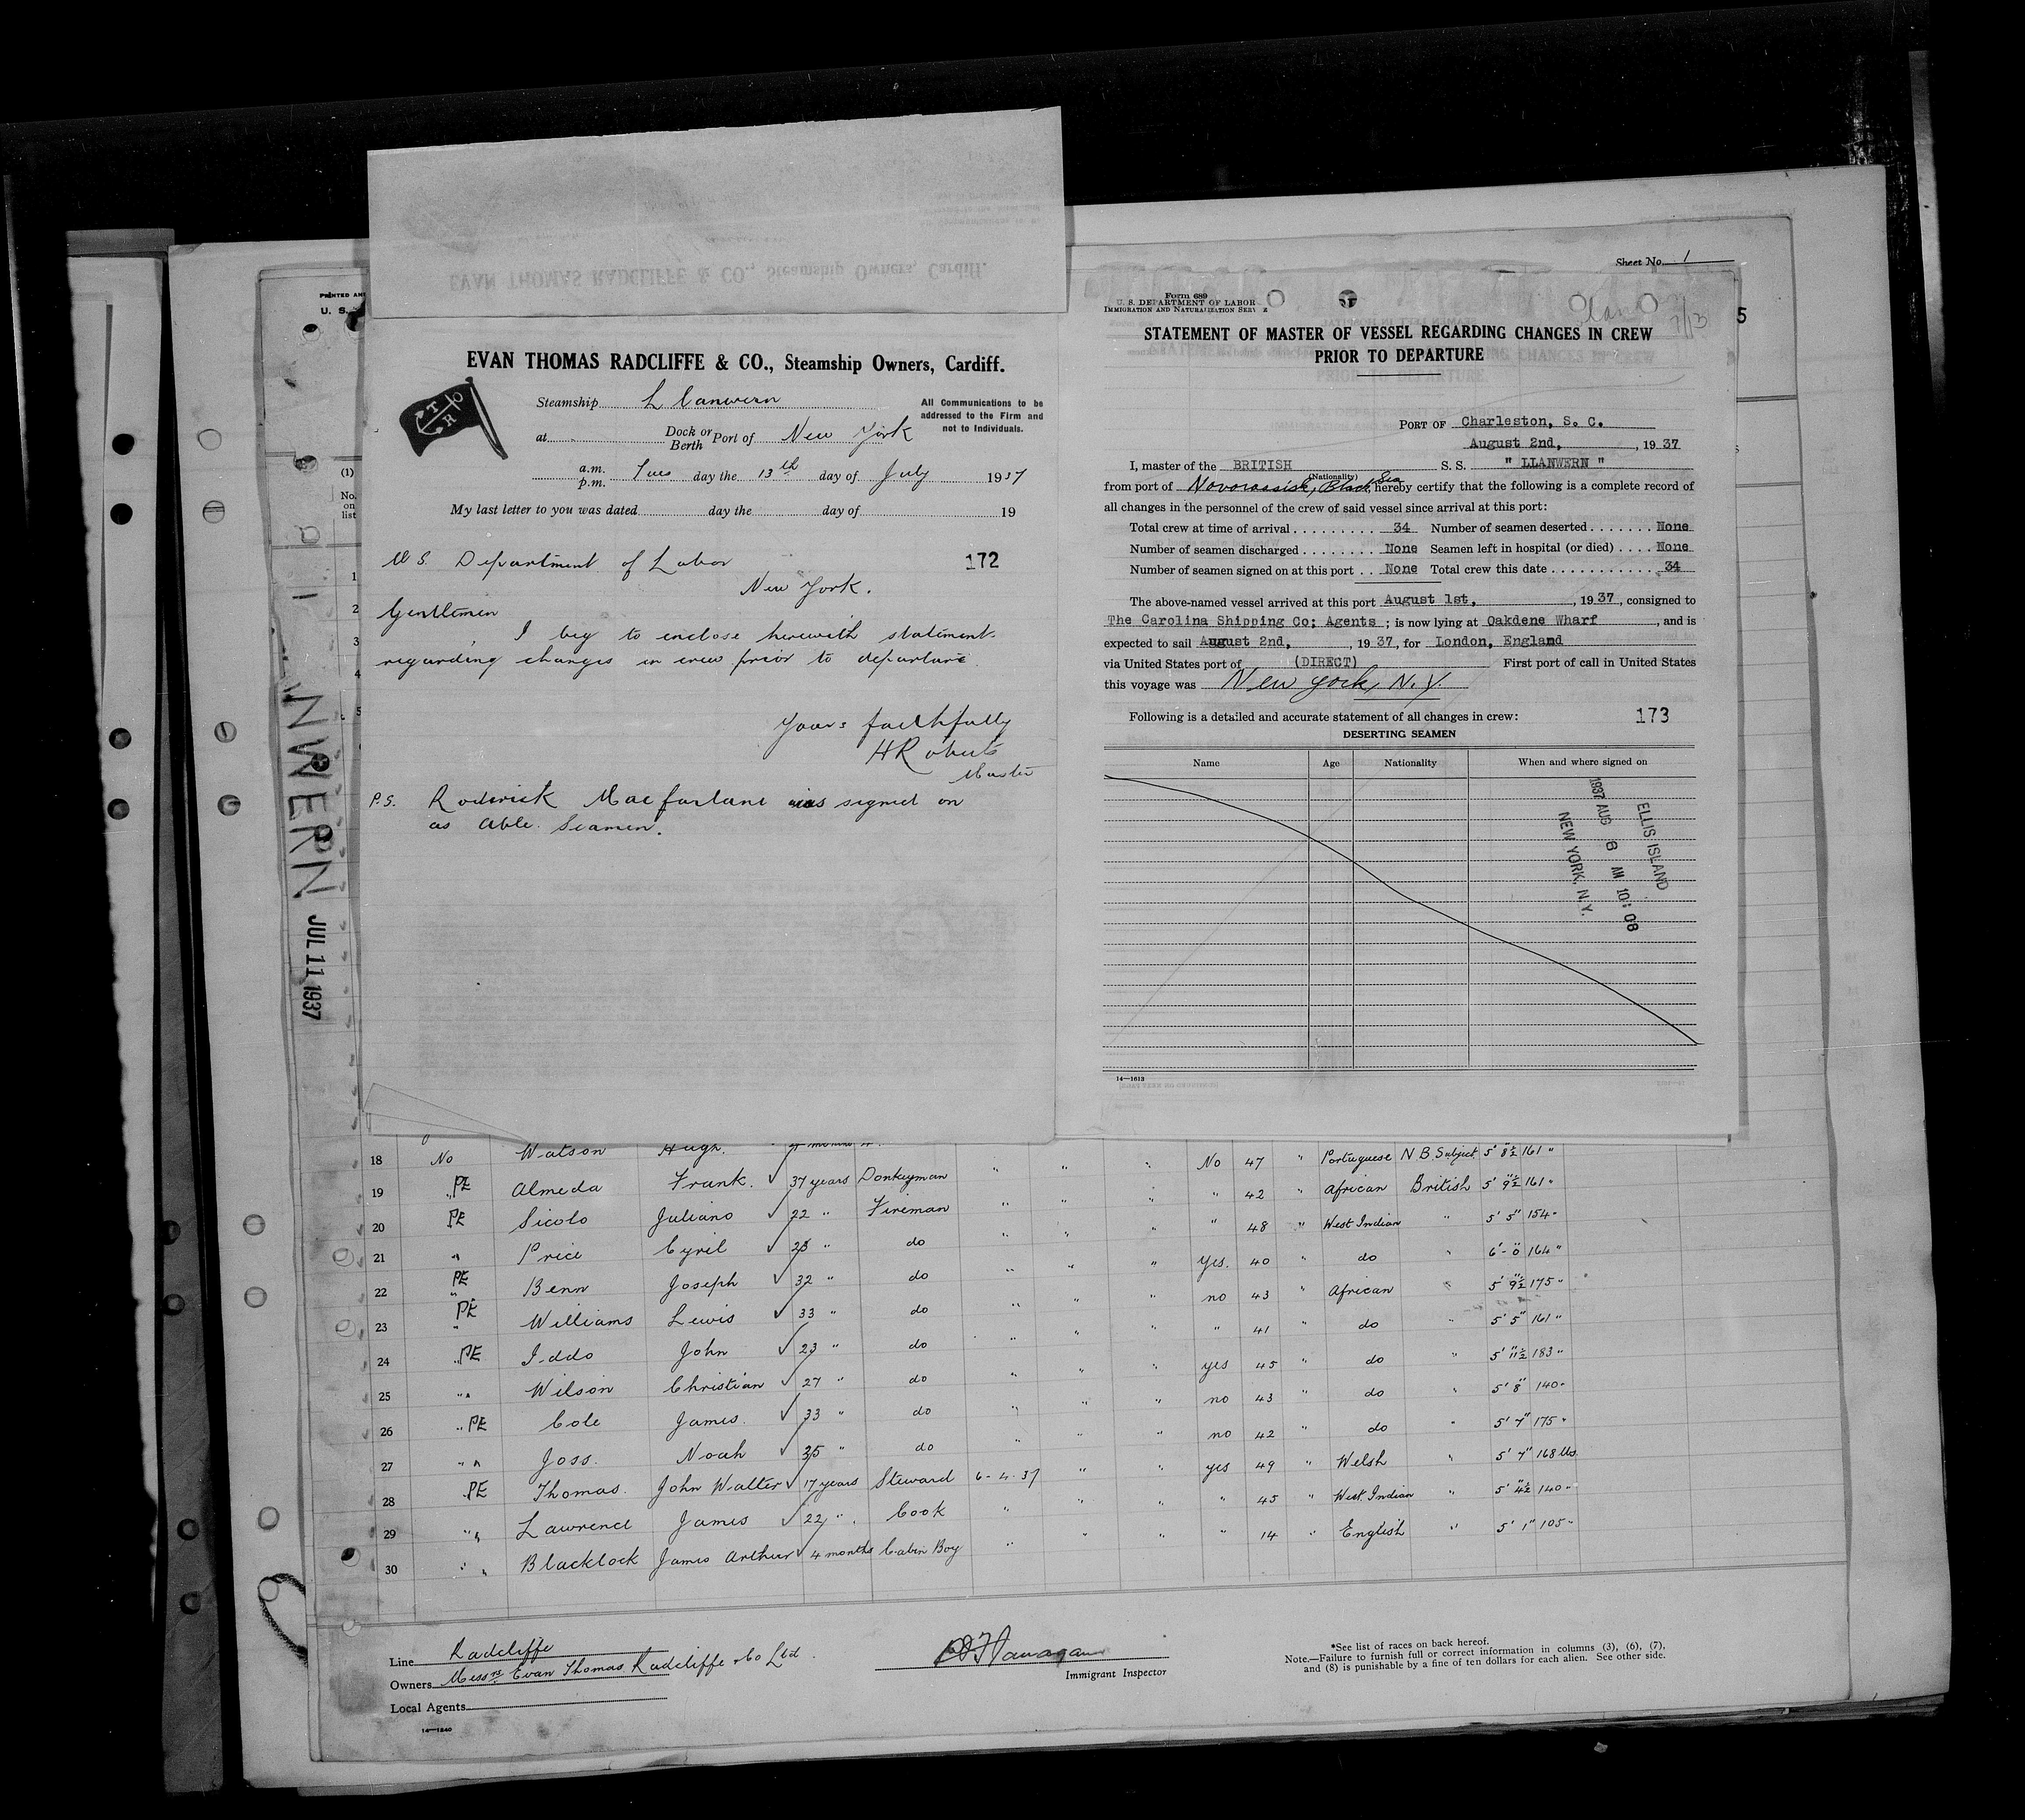 Sheet No. 1
PRINTED AN
U. S.
(1)
No.
on
list
1
2
3
4
5
NWERN JUL 11 1937
EVAN THOMAS RADCLIFFE & CO., Steamship Owners, Cardiff.
T O R
Steamship Llanwern
All Communications to be
addressed to the Firm and
not to Individuals.
at Dock or Berth Port of New York
a.m. p.m. Tues day the 13th day of July 1937
My last letter to you was dated day the day of 19
U S. Department of Labor 172
New York.
Gentlemen
I beg to enclose herewith statement
regarding changes in crew prior to departure.
Yours faithfully
H Roberts
Master
P.S. Roderick Macfarlane was signed on
as able Seamen.
Form 689
U. S. DEPARTMENT OF LABOR
IMMIGRATION AND NATURALIZATION SERV
STATEMENT OF MASTER OF VESSEL REGARDING CHANGES IN CREW
PRIOR TO DEPARTURE
5
PORT OF Charleston, S. C.
August 2nd, , 1937
I, master of the BRITISH S. S. " LLANWERN "
(Nationality)
from port of Novorossisk, Black Sea hereby certify that the following is a complete record of
all changes in the personnel of the crew of said vessel since arrival at this port:
Total crew at time of arrival . . . . . . . . . . 34 Number of seamen deserted . . . . . . . None
Number of seamen discharged . . . . . . . . None Seamen left in hospital (or died) . . . . None
Number of seamen signed on at this port . . None Total crew this date . . . . . . . . . . . . 34
The above-named vessel arrived at this port August 1st, , 1937, consigned to
The Carolina Shipping Co; Agents ; is now lying at Oakdene Wharf , and is
expected to sail August 2nd, , 1937, for London, England
via United States port of (DIRECT) First port of call in United States
this voyage was New York, N. Y.
Following is a detailed and accurate statement of all changes in crew: 173
DESERTING SEAMEN
Name Age Nationality When and where signed on
ELLIS ISLAND
1937 AUG 6 AM 10:08
NEW YORK, N.Y.
14—1613
18 No Watson Hugh. No 47 " Portuguese N B. Subject 5' 8½" 161 "
19 " PE Almeda Frank. ✓ 37 years Donkeyman " " " " 42 " African British 5' 9½" 161 "
20 PE Sicolo Juliano ✓ 22 " Fireman " " " " 48 " West Indian " 5' 5" 154 "
21 " Price Cyril ✓ 23 " do " " " Yes. 40 " do " 6'-0" 164 "
22 PE " Benn Joseph ✓ 32 " do " " " no 43 " African " 5' 9½" 175 "
23 PE " Williams Lewis ✓ 33 " do " " " " 41 " do " 5' 5" 161 "
24 " PE Iddo John ✓ 23 " do " " " yes 45 " do " 5' 11½" 183 "
25 " " Wilson Christian ✓ 27 " do " " " no 43 " do " 5' 8" 140 "
26 " PE Cole James. ✓ 33 " do " " " no 42 " do " 5' 7" 175 "
27 " " Joss. Noah ✓ 35 " do " " " yes 49 " Welsh " 5' 7" 168 lbs.
28 PE Thomas. John Walter ✓ 17 years Steward 6-4-37 " " " 45 " West Indian " 5' 4½" 140 "
29 " " Lawrence James ✓ 22 " Cook " " " " 14 " English " 5' 1" 105 "
30 " " Blacklock James Arthur ✓ 4 months Cabin Boy "
Line Radcliffe
Owners Messrs Evan Thomas Radcliffe & Co Ltd.
Local Agents
14—1240
Immigrant Inspector
*See list of races on back hereof.
Note.—Failure to furnish full or correct information in columns (3), (6), (7),
and (8) is punishable by a fine of ten dollars for each alien. See other side.